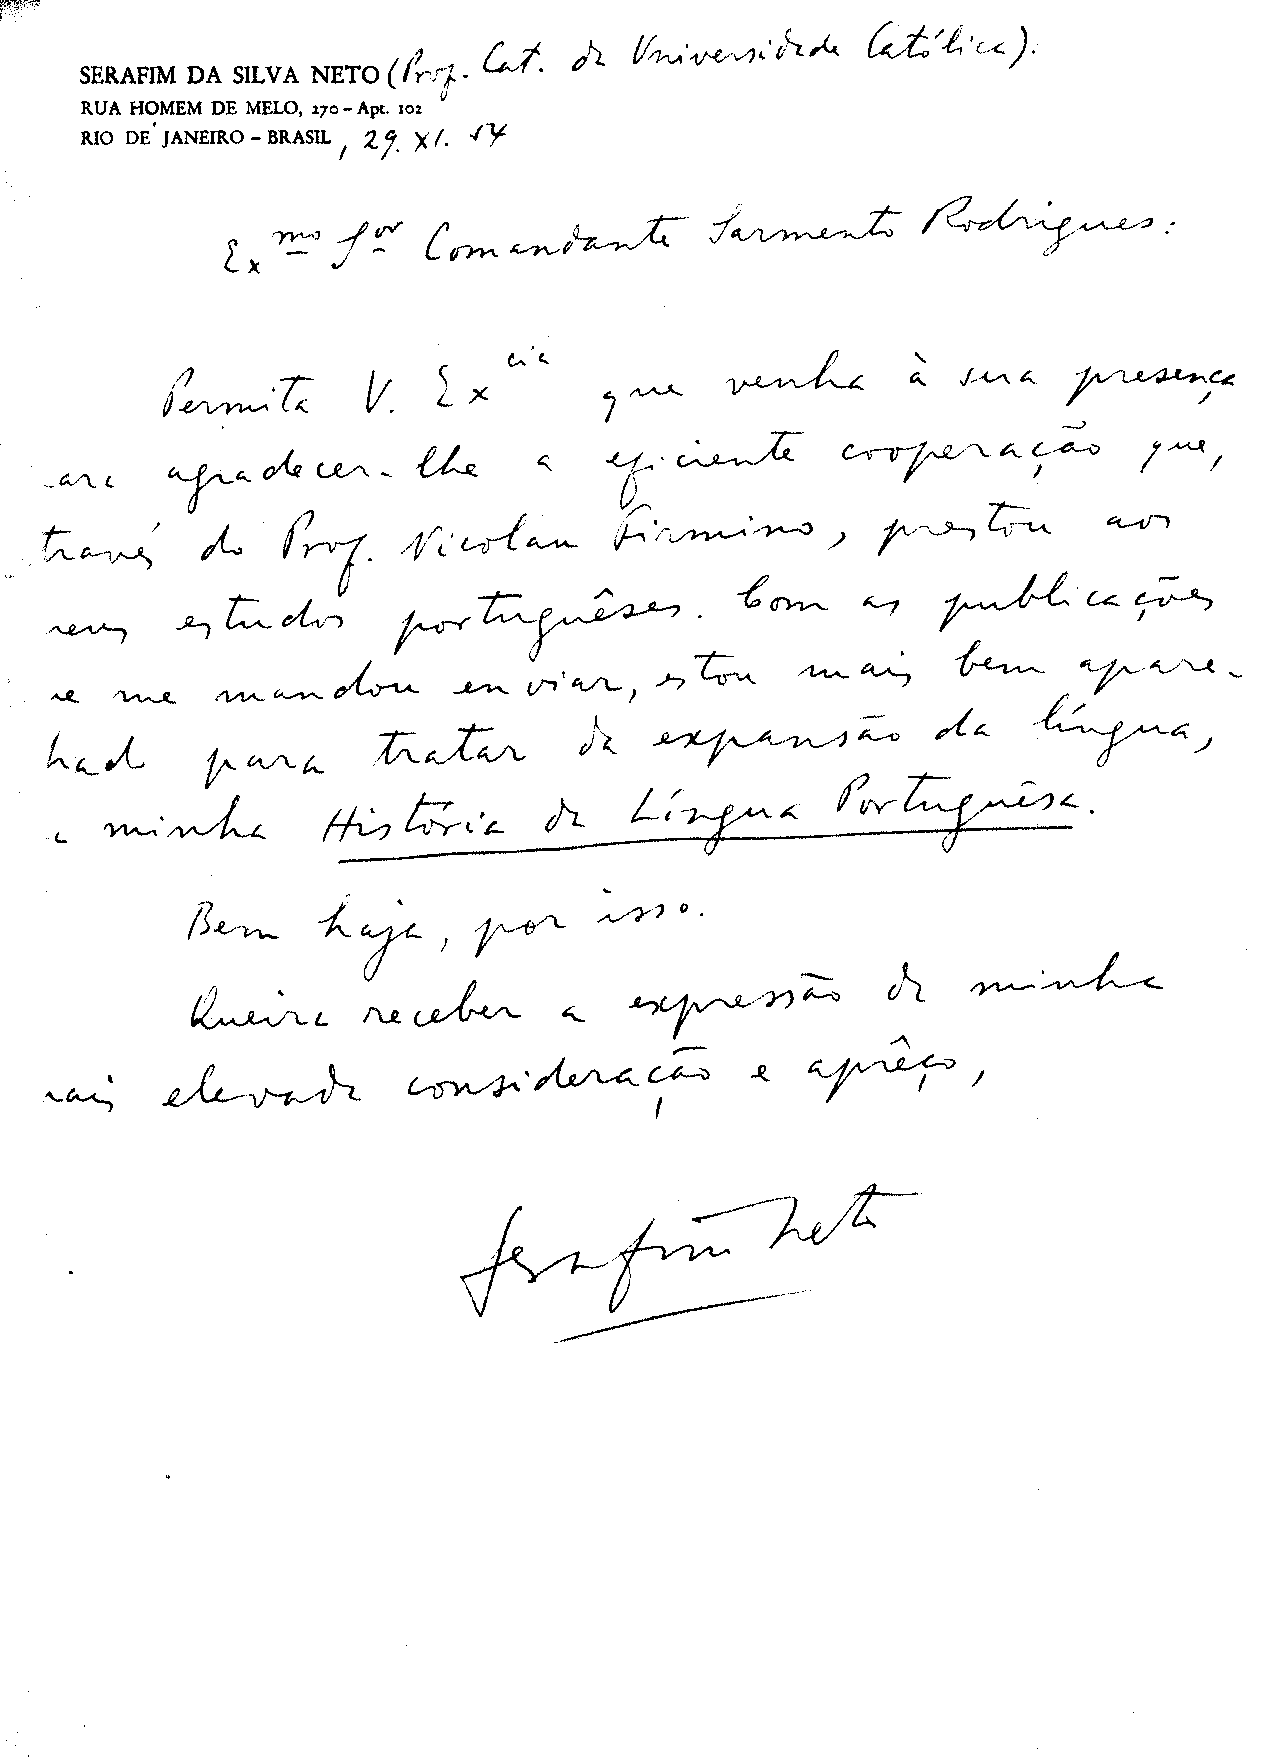 SERAFIM DA SILVA NETO (Prof. Cat. da Universidade Católica).
RUA HOMEM DE MELO, 270 – Apt. 102
RIO DE JANEIRO – BRASIL, 29. XI. 54
Exmo Sor Comandante Sarmento Rodrigues:
Permita V. Excia que venha à sua presença
ara agradecer-lhe a eficiente cooperação que,
través do Prof. Nicolau Firmino, prestou aos
meus estudos portuguêses. Com as publicações
ue me mandou enviar, estou mais bem apare-
hado para tratar da expansão da língua,
a minha História da Língua Portuguêsa.
Bem haja, por isso.
Queira receber a expressão da minha
mais elevada consideração e aprêço,
Serafim Neto